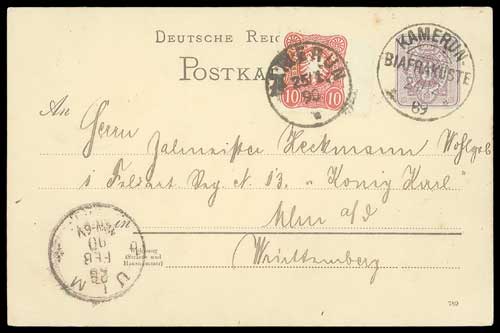 DEUTSCHE REIC
POSTKA
KAMERUN
25/1
90
10 10
KAMERUN-
BIAFRAKÜSTE
89
An
Herrn Zahlmeister Heckmann Wohlgeb
i Feldart Reg N 13. "König Karl"
Ulm a/d
Württemberg
in
Wohnung
(Strasse und
Hausnummer)
ULM
28
FEB
90
789